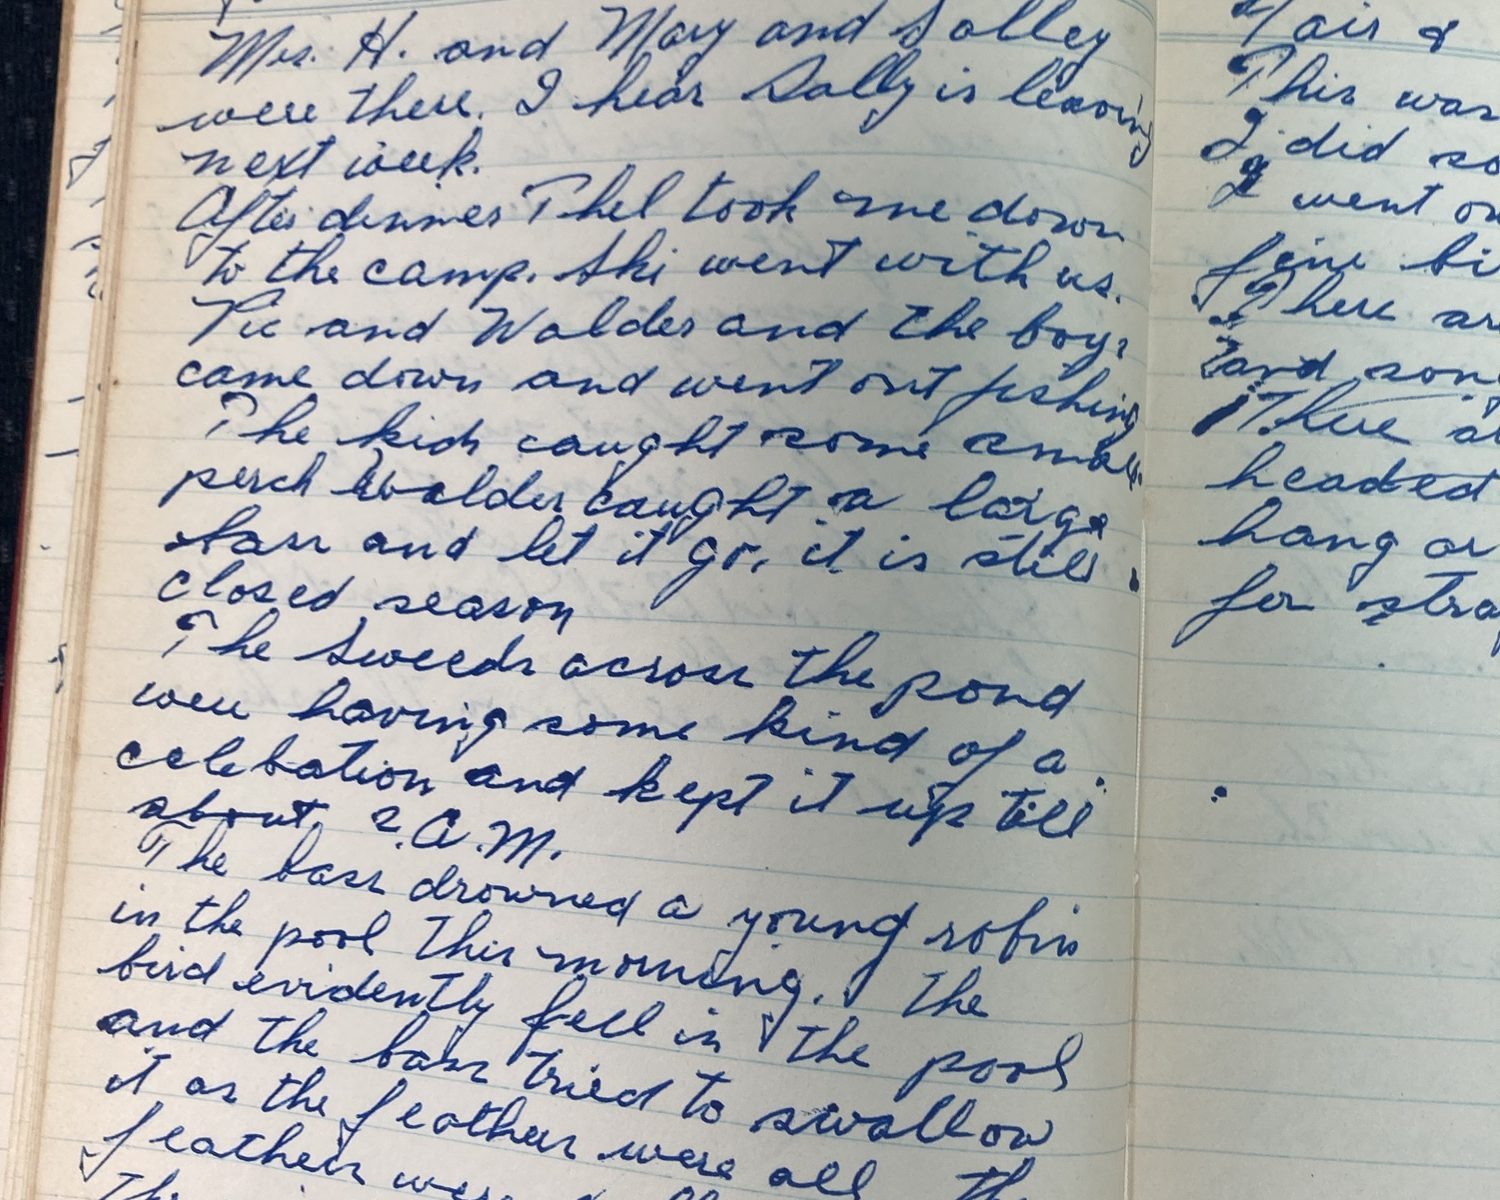 Mrs. H. and Mary and Salley
were there. I hear Sally is leaving
next week.
After dinner Thel took me down
to the camp. Ski went with us.
Vic and Walder and the boys
came down and went out fishing
The kids caught some small
perch Walder caught a large
bass and let it go, it is still
closed season
The Sweeds across the pond
were having some kind of a
celebation and kept it up till
about 2 A.M.
The bass drowned a young robin
in the pool this morning. The
bird evidently fell in the pool
and the bass tried to swallow
it as the feathers were all the
feathers were
Hair &
This was
I did so
I went ou
fine bi
There ar
and song
There a
headed
hang or
for stra